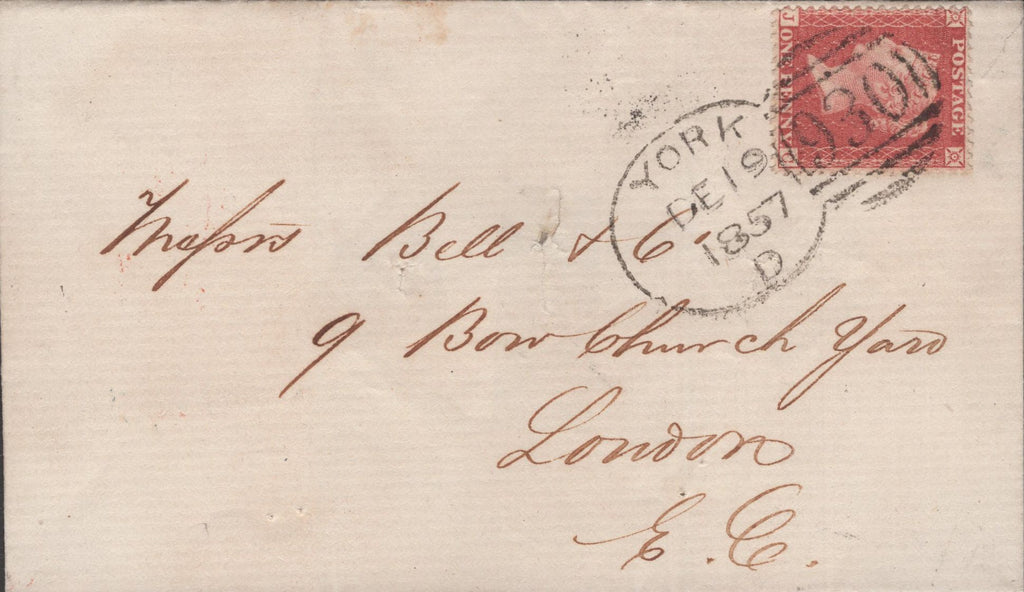 J
POSTAGE
ONE PENNY
930
YORK
DE 19
1857
D
Messrs Bell & Co
9 Bow Church Yard
London
E. C.